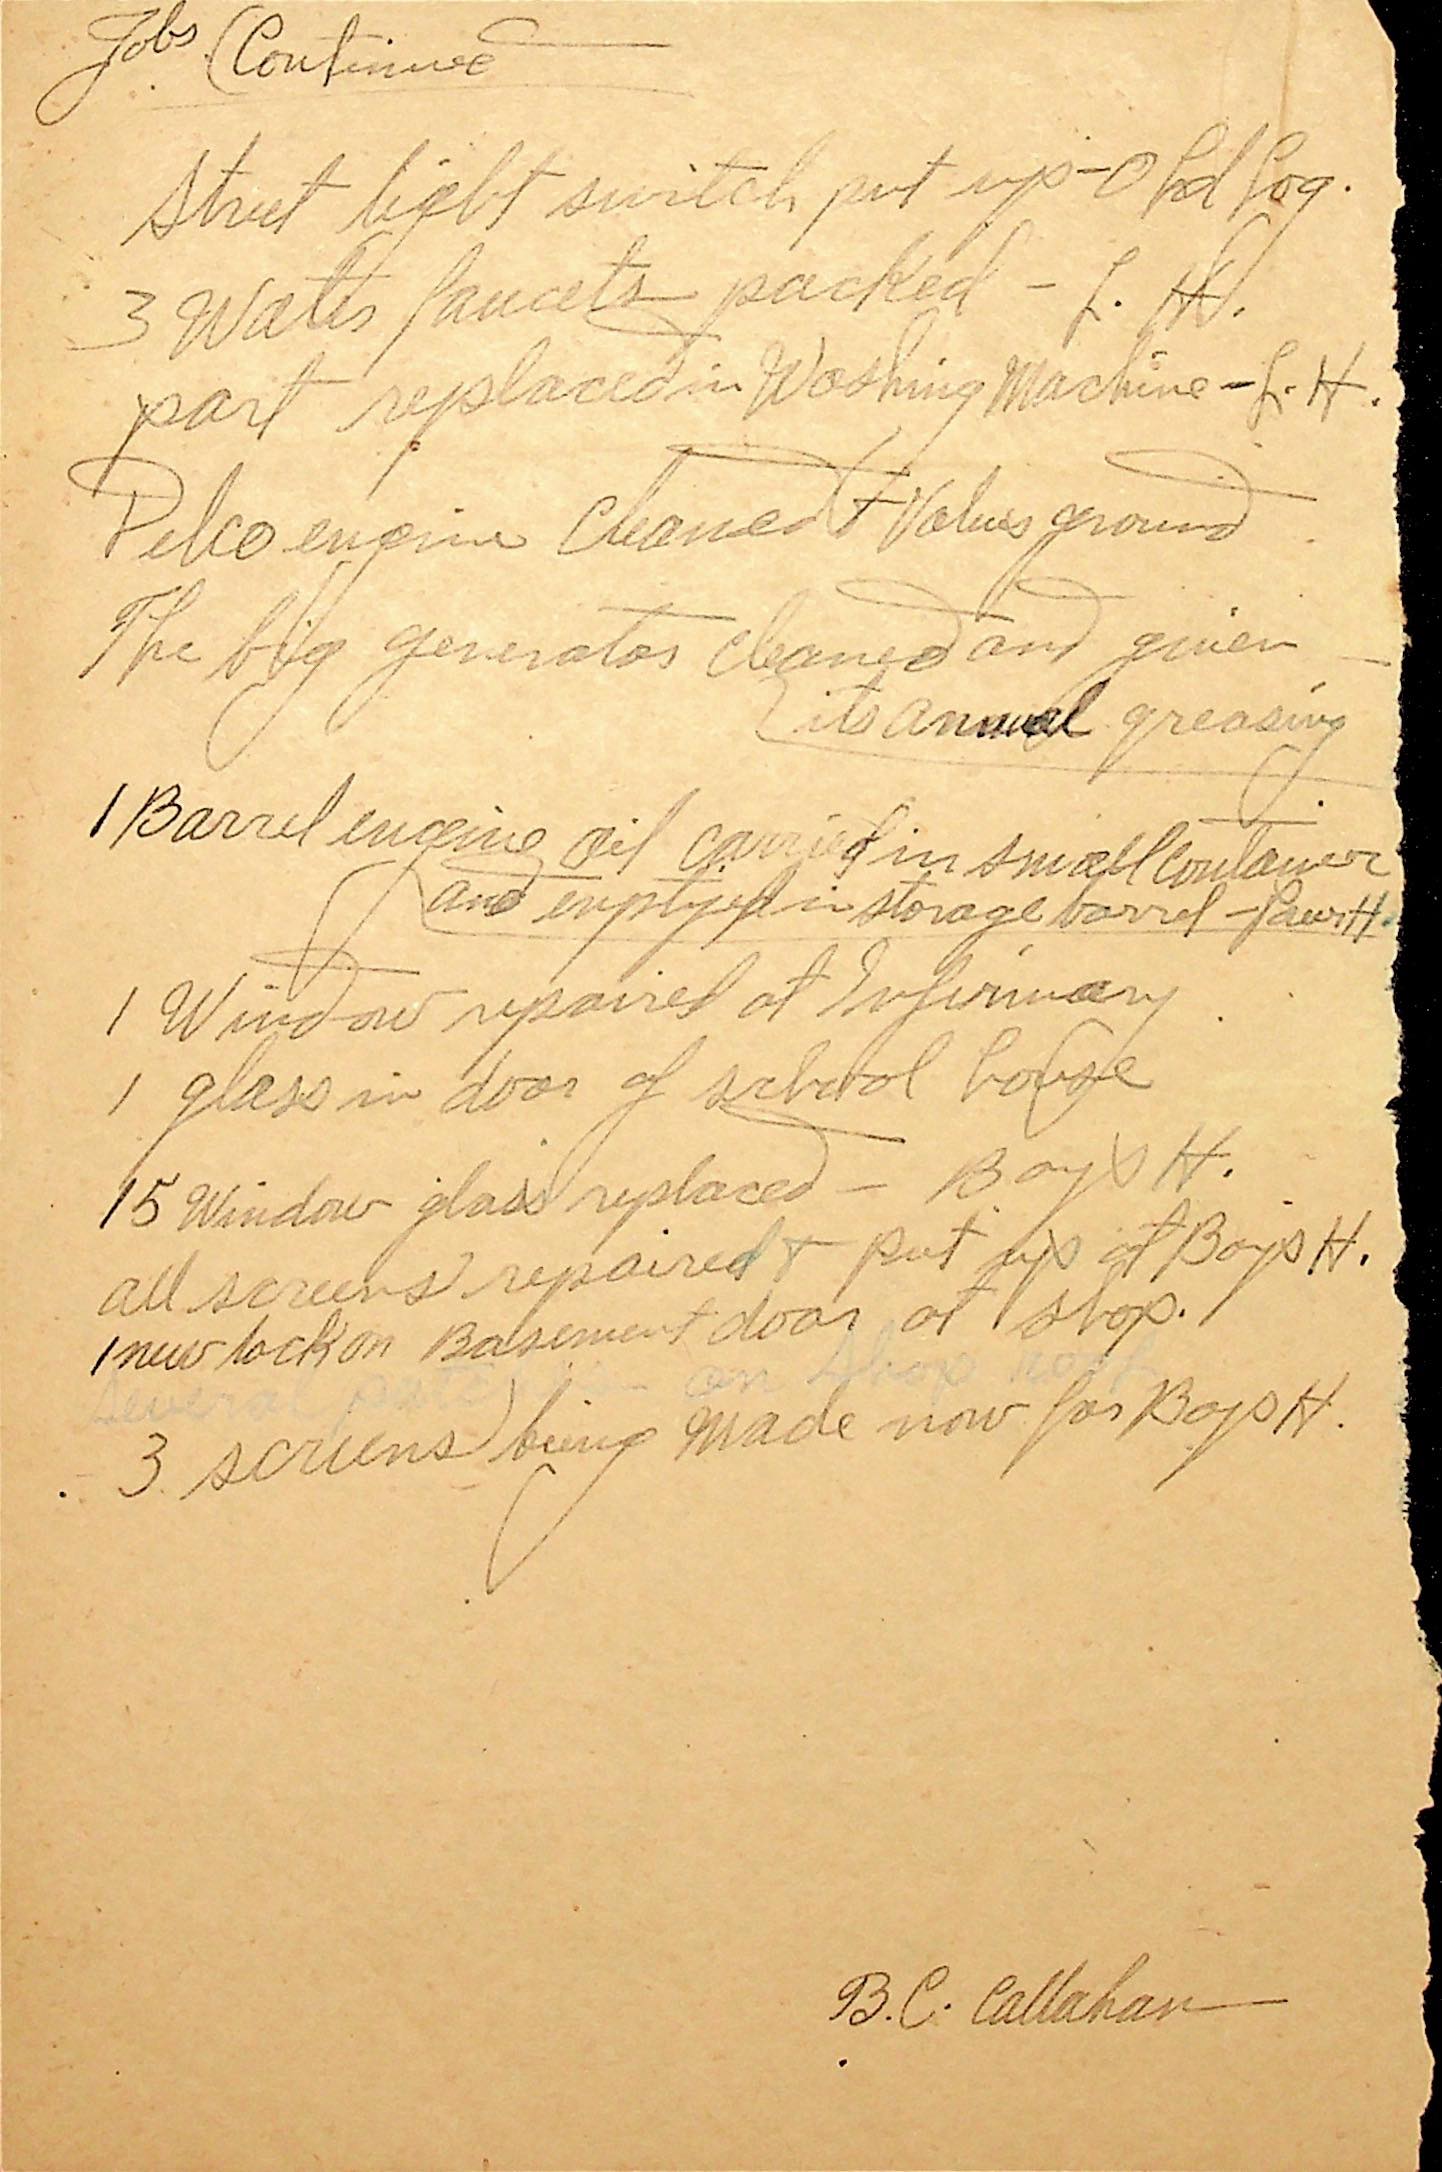 Jobs (Continued
Street light switch put up - Old Log.
3 Water faucets packed - L. H.
part replaced in Washing Machine - L. H.
Delco engine Cleaned & Valves ground
The big generator cleaned and given
its annual greasing
1 Barrel engine oil carried in small container
and emptyed in storage barrel - Pow H.
1 Window repaired at Infirmary.
1 glass in door of school house
15 Window glass replaced - Boys H.
all screens repaired & put up at Boys H.
1 new lock on Basement door at shop.
Several patches on shop roof
3 screens being made now for Boys H.
B. C. Callahan